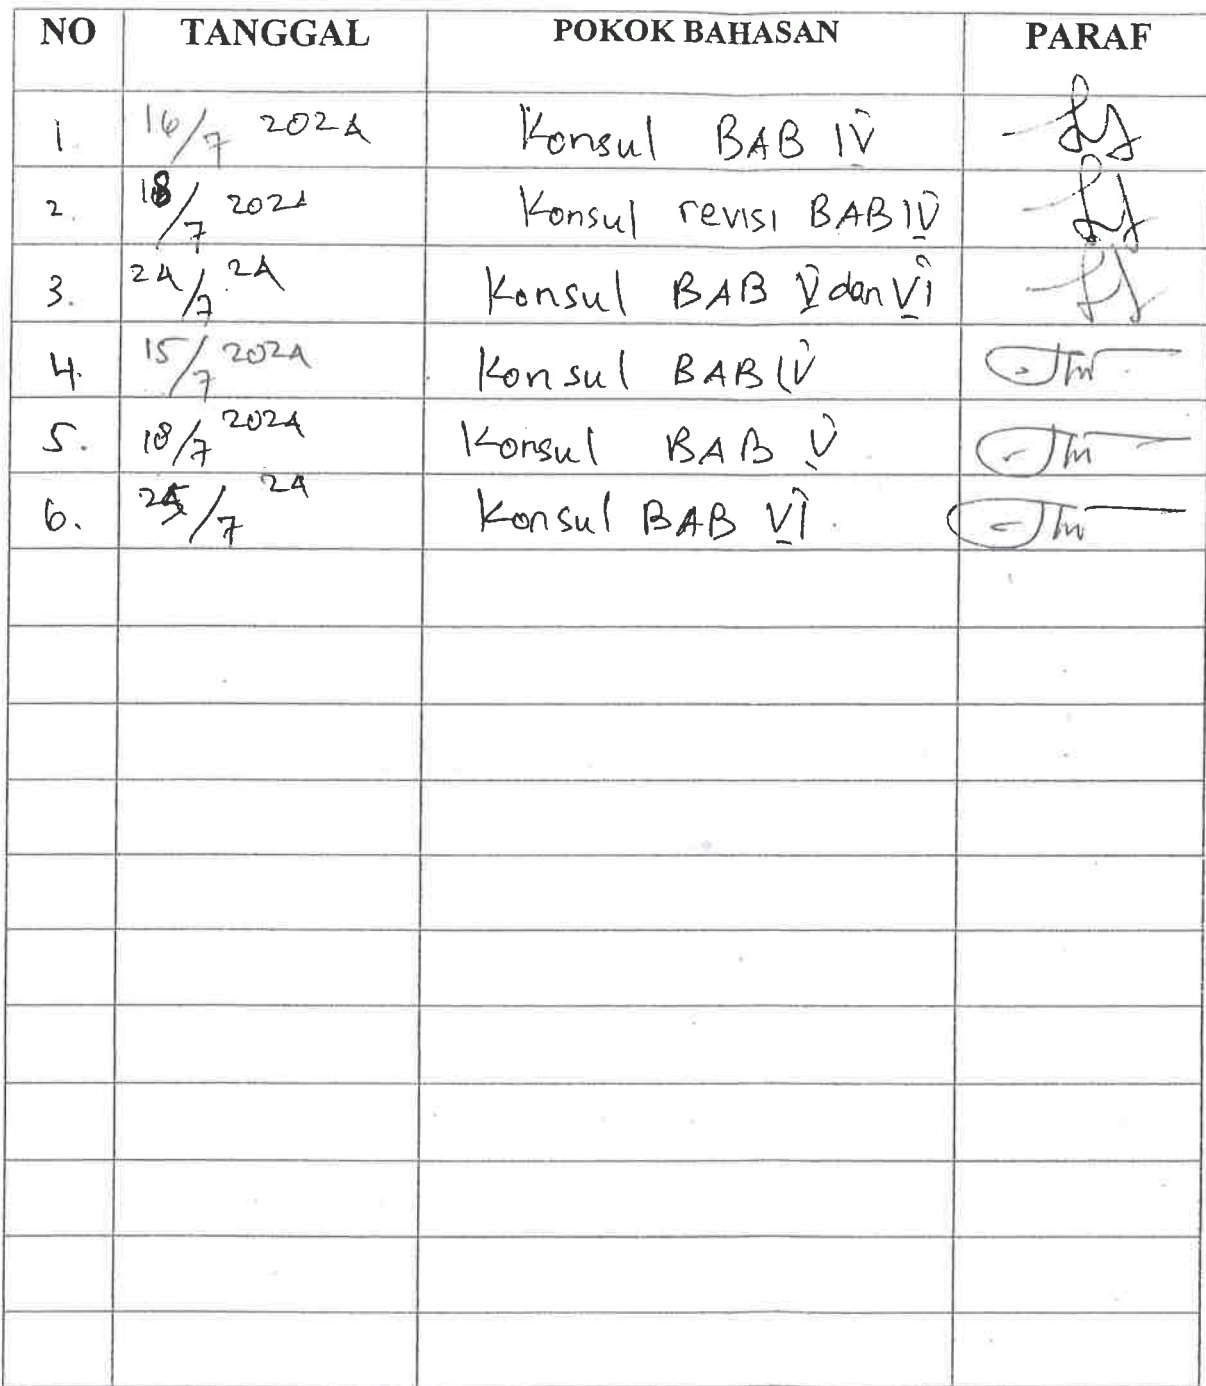 NO TANGGAL POKOK BAHASAN PARAF
1. 16/7 2024 Konsul BAB IV
2. 18/7 2024 Konsul revisi BAB IV
3. 24/7 24 Konsul BAB V dan VI
4. 15/7 2024 Konsul BAB IV
5. 18/7 2024 Konsul BAB V
6. 25/7 24 Konsul BAB VI.